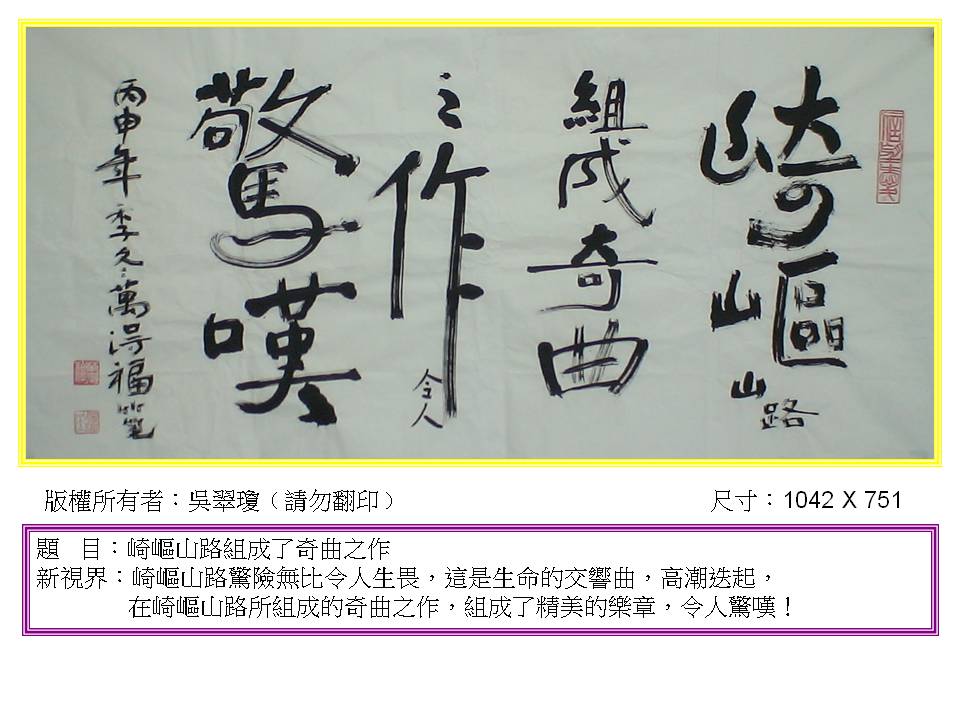 崎嶇山路
組成奇曲
之作令人
驚嘆
丙申年季冬萬得福筆
版權所有者：吳翠瓊（請勿翻印）
尺寸：1042 X 751
題 目：崎嶇山路組成了奇曲之作
新視界：崎嶇山路驚險無比令人生畏，這是生命的交響曲，高潮迭起，
在崎嶇山路所組成的奇曲之作，組成了精美的樂章，令人驚嘆！